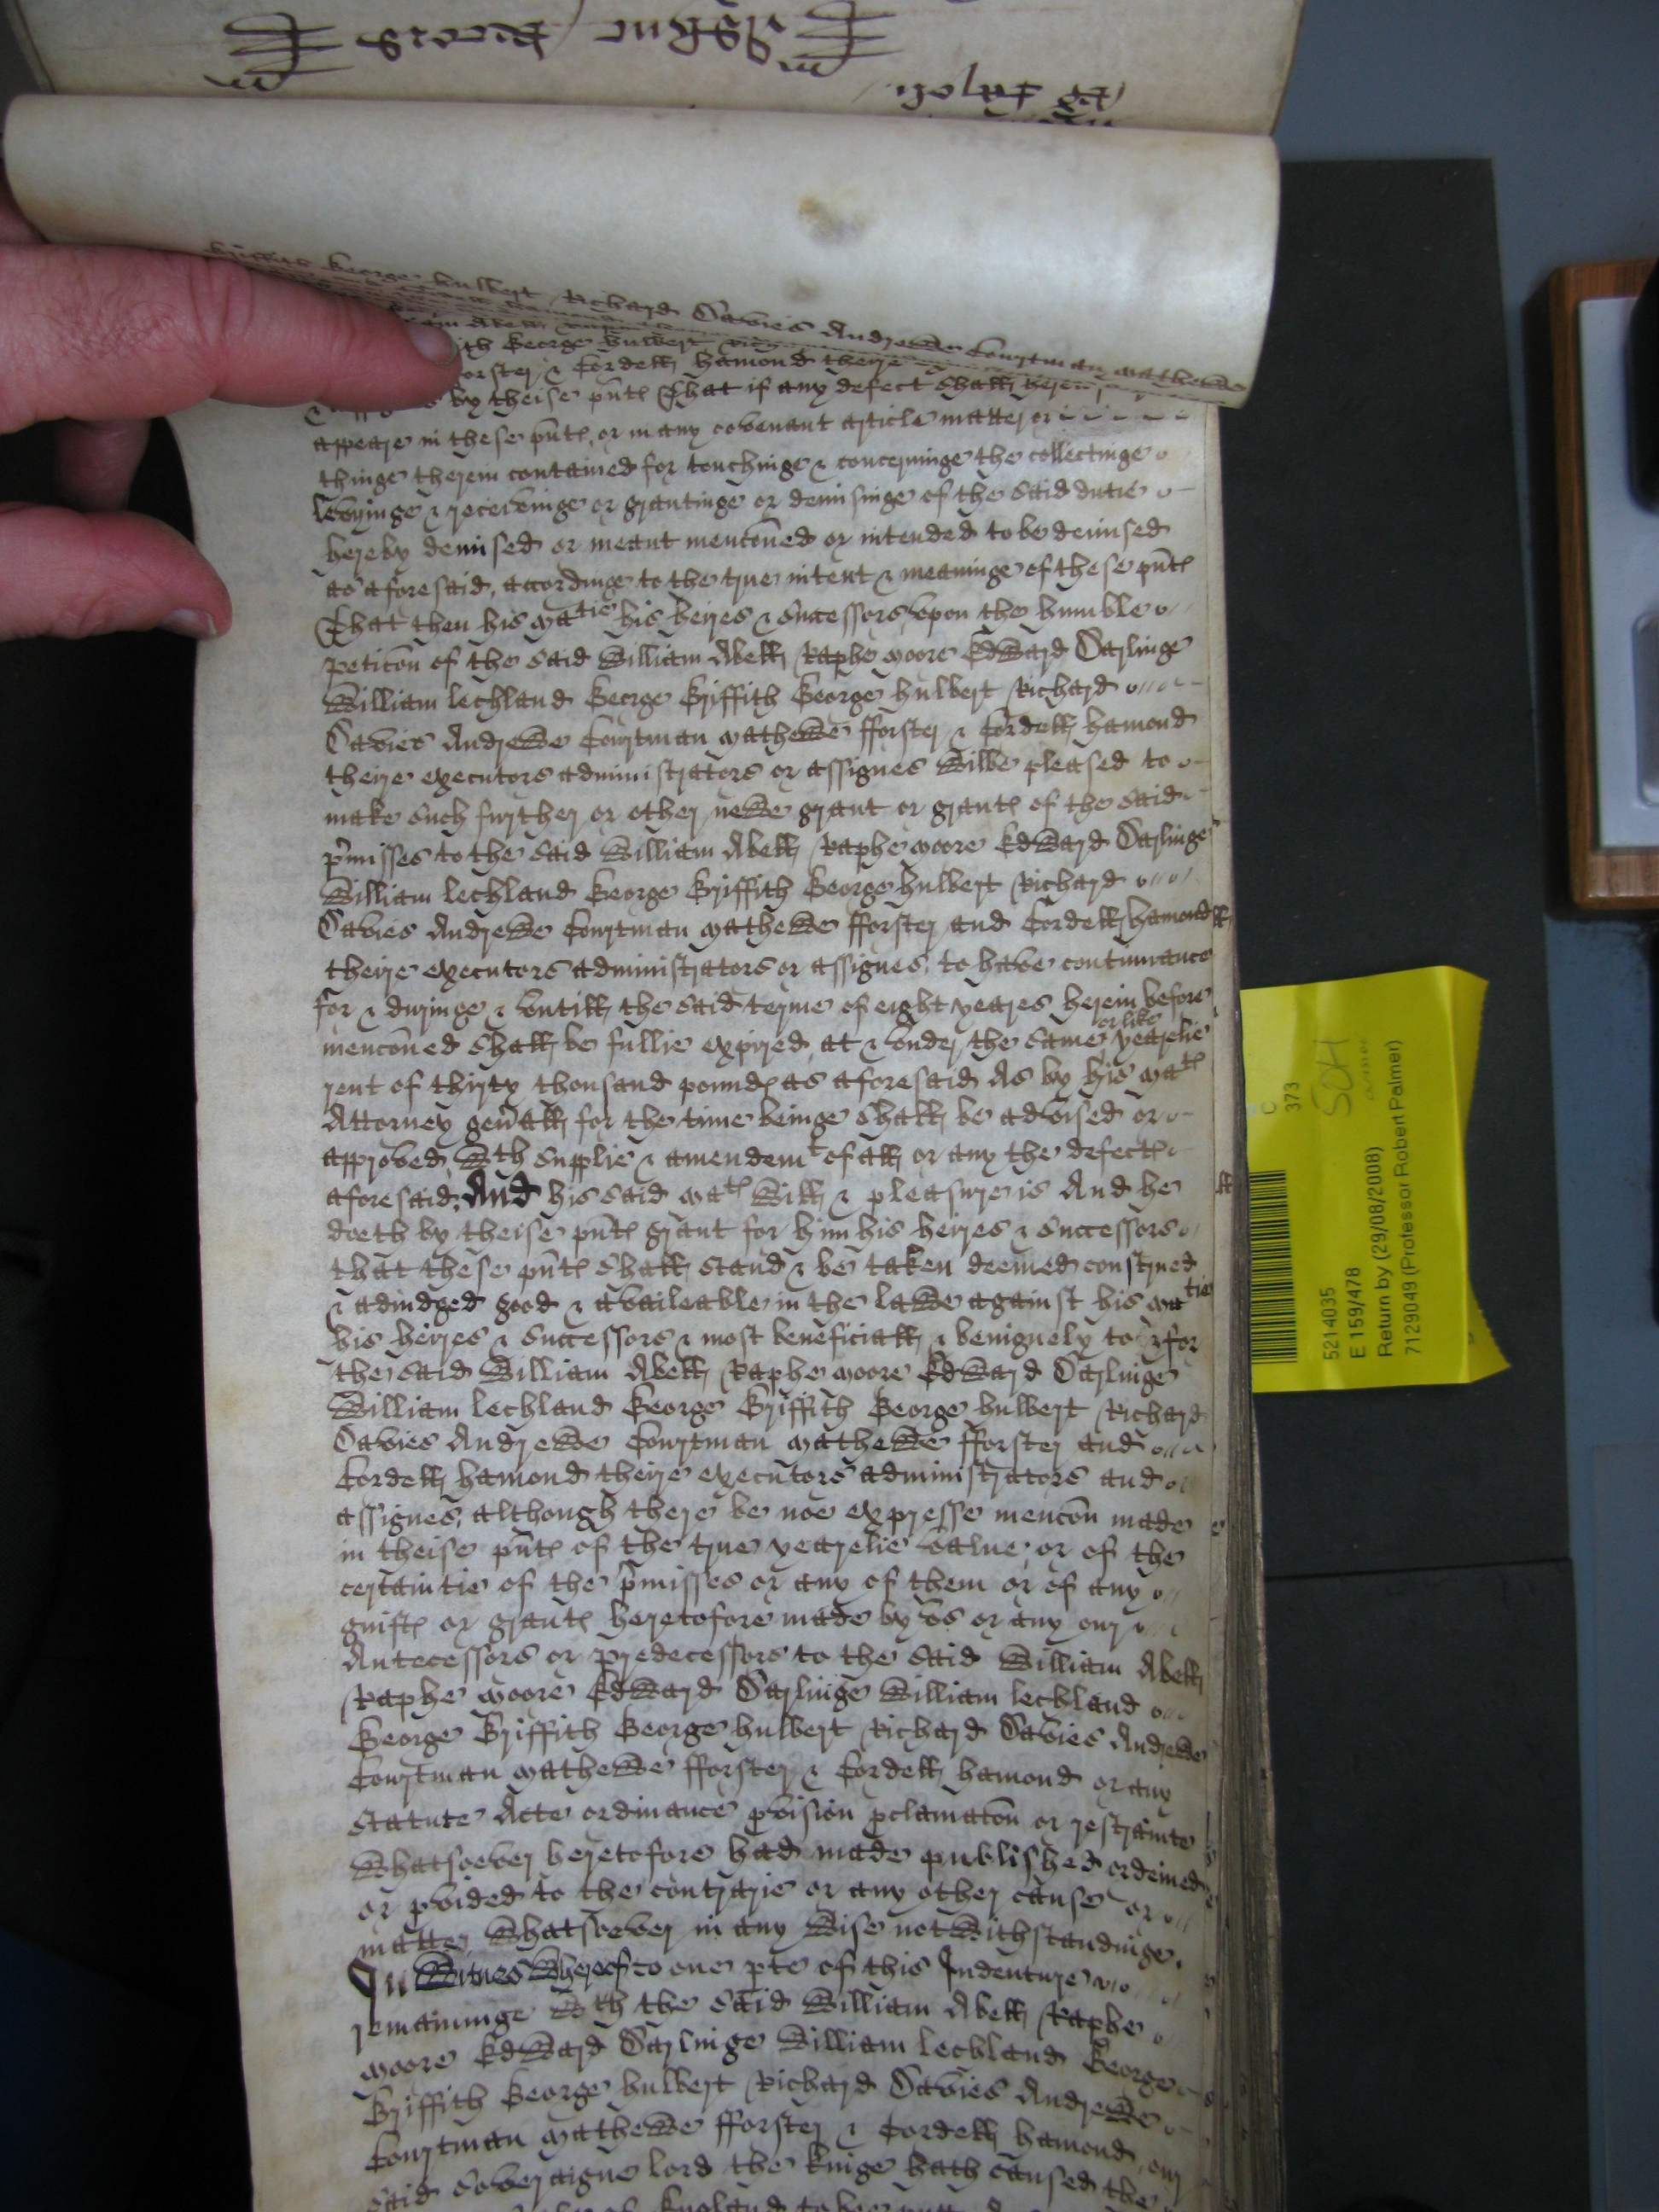 Griffith George Hulbert Richard Davies Andrewe Courtman Mathewe
ith George Hulbert
orster & Cordell Hamond theire
by theise pñts That if any defect shall here
appeare in these pñts, or in any covenant article matter or
thinge therein contained for touchinge & concerninge the collectinge
levyinge & receivinge or grantinge or demisinge of the said dutie
hereby demised or meant menc̃oned or intended to be demised
as aforesaid, accordinge to the true intent & meaninge of these pñts
That then his Ma^tie his heires & successors, upon the humble
petic̃on of the said William Abell Raphe Moore Edward Darlinge
William Lechland George Griffith George Hulbert Richard
Davies Andrewe Courtman Mathewe fforster & Cordell Hamond
theire executors administrators or assignes wilbe pleased to
make such further or other newe grant or grants of the said
p̃misses to the said William Abell Raphe Moore Edward Darlinge
William Lechland George Griffith George Hulbert Richard
Davies Andrewe Courtman Mathewe fforster and Cordell Hamond
theire executors administrators or assignes, to have continuance
for & duringe & untill the said terme of eight yeares herein before
menc̃oned shall be fullie expired, at & under the same or like yearelie
rent of thirty thousand pounds as aforesaid As by his Ma^ts
Attorney geñall for the time beinge shall be advised or
approved, w^th supplie & amendem^t of all or any the defects
aforesaid, And his said Ma^ts will & pleasure is And he
doeth by theise pñts grant for him his heires & successors
that these pñts shall stand & be taken deemed construed
& adiudged good & availeable in the lawe against his Ma^tie
his heires & successors & most beneficiall & benignely to & for
the said William Abell Raphe Moore Edward Darlinge
William Lechland George Griffith George Hulbert Richard
Davies Andrewe Courtman Mathewe fforster and
Cordell Hamond theire executors administrators and
assignes, although there be noe expresse menc̃on made
in theise pñts of the true yearelie value, or of the
certaintie of the p̃misses or any of them or of any
guifts or grants heretofore made by us or any our
Antecessors or predecessors to the said William Abell
Raphe Moore Edward Darlinge William Lechland
George Griffith George Hulbert Richard Davies Andrewe
Courtman Mathewe fforster & Cordell Hamond or any
Statute Acte ordinance pvision pclamac̃on or restrainte
Whatsoever heretofore had made published ordeined
or pvided to the contrarie or any other cause or
matter whatsoever in any wise notwithstandinge.
In Witnes Whereof to one pte of this Indenture
remaininge w^th the said William Abell Raphe
Moore Edward Darlinge William Lechland George
Griffith George Hulbert Richard Davies Andrewe
Courtman Mathewe fforster & Cordell Hamond, our
said Soveraigne lord the Kinge hath caused the
England to bee putt
373
SCH
5214035
E 159/478
Return by (29/08/2008)
7129049 (Professor Robert Palmer)